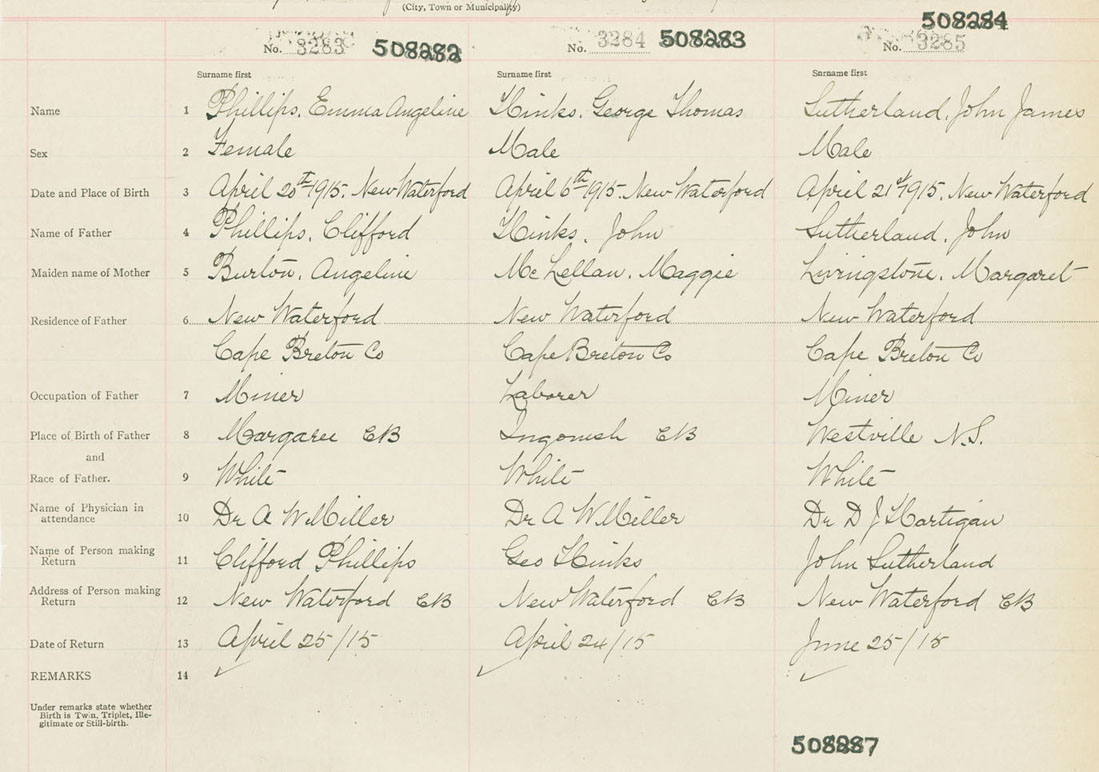 (City, Town or Municipality)
508284
No. 3283 508282 No. 3284 508283 No. 3285
Surname first Surname first Surname first
Name 1 Phillips, Emma Angeline Hinks, George Thomas Sutherland, John James
Sex 2 Female Male Male
Date and Place of Birth 3 April 20th 1915. New Waterford April 6th 1915. New Waterford April 21st 1915. New Waterford
Name of Father 4 Phillips, Clifford Hinks, John Sutherland, John
Maiden name of Mother 5 Burton, Angeline McLellan, Maggie Livingstone, Margaret
Residence of Father 6 New Waterford New Waterford New Waterford
Cape Breton Co Cape Breton Co Cape Breton Co
Occupation of Father 7 Miner Laborer Miner
Place of Birth of Father 8 Margaree CB Ingonish CB Westville N.S.
and
Race of Father. 9 White White White
Name of Physician in
attendance 10 Dr A W Miller Dr A W Miller Dr D J Hartigan
Name of Person making
Return 11 Clifford Phillips Geo Hinks John Sutherland
Address of Person making
Return 12 New Waterford CB New Waterford CB New Waterford CB
Date of Return 13 April 25/15 April 24/15 June 25/15
REMARKS 14
Under remarks state whether
Birth is Twin, Triplet, Ille-
gitimate or Still-birth.